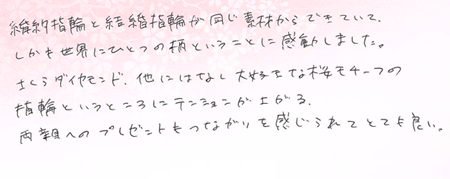 婚約指輪と結婚指輪が同じ素材からできていて、
しかも世界にひとつの柄ということに感動しました。
さくらダイヤモンド、他にはなし大好きな桜モチーフの
指輪というところにテンションが上がる。
両親へのプレゼントもつながりを感じられてとても良い。